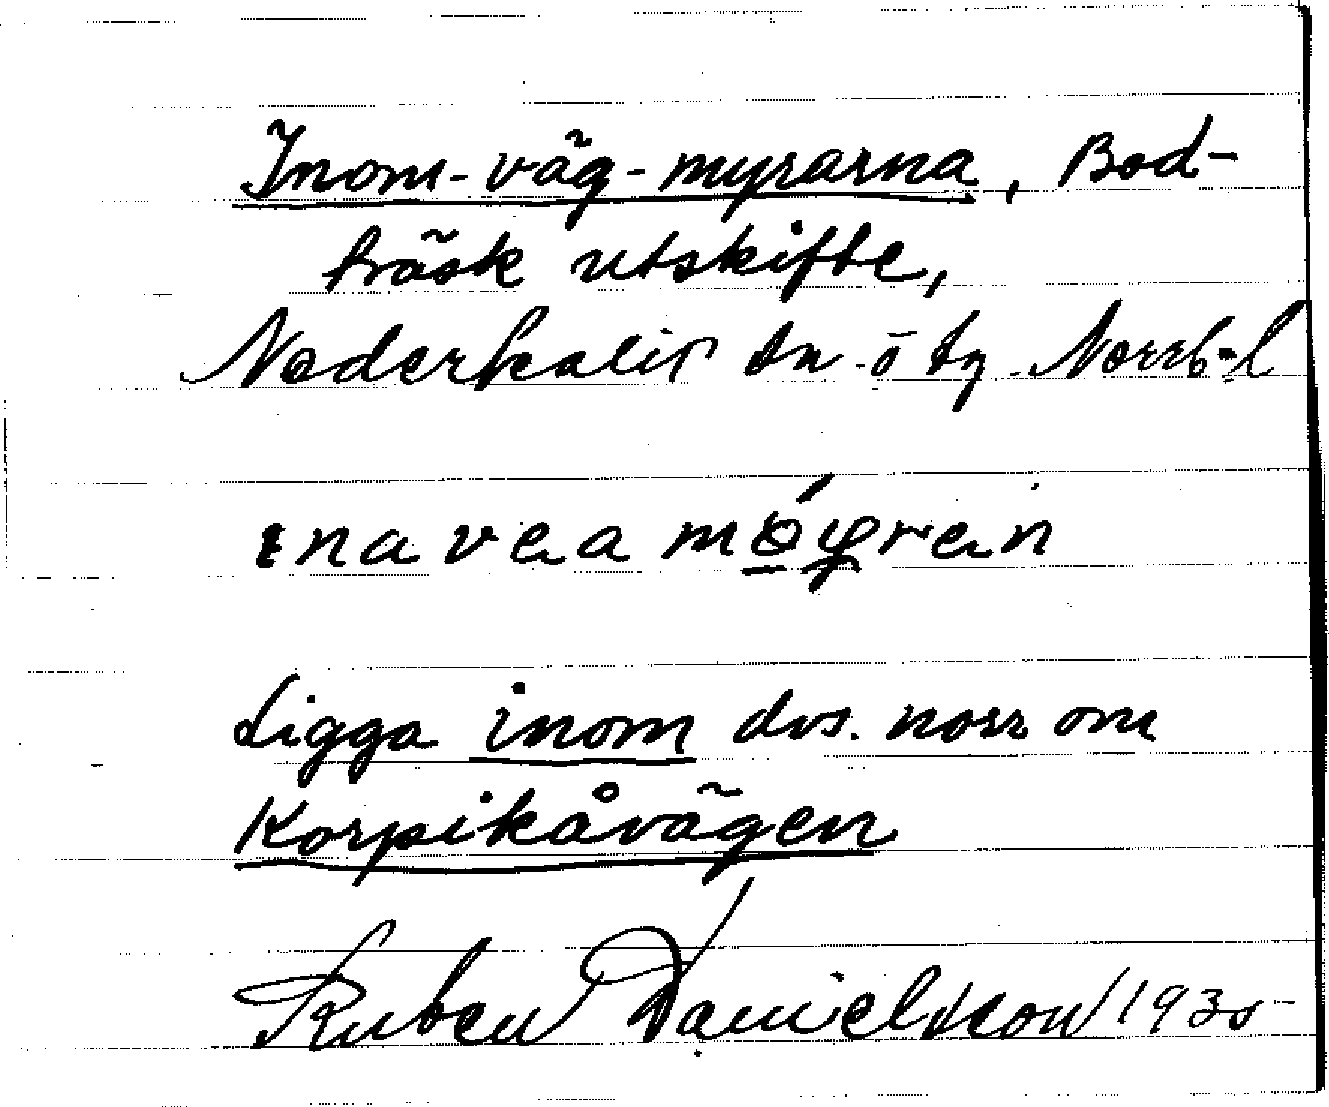 Inom-väg-myrarna, Bod-
träsk utskifte,
Nederkalix sn ö tg Norrb. l
ligga inom dvs. norr om
Korpikåvägen
Ruben Danielsson 1935